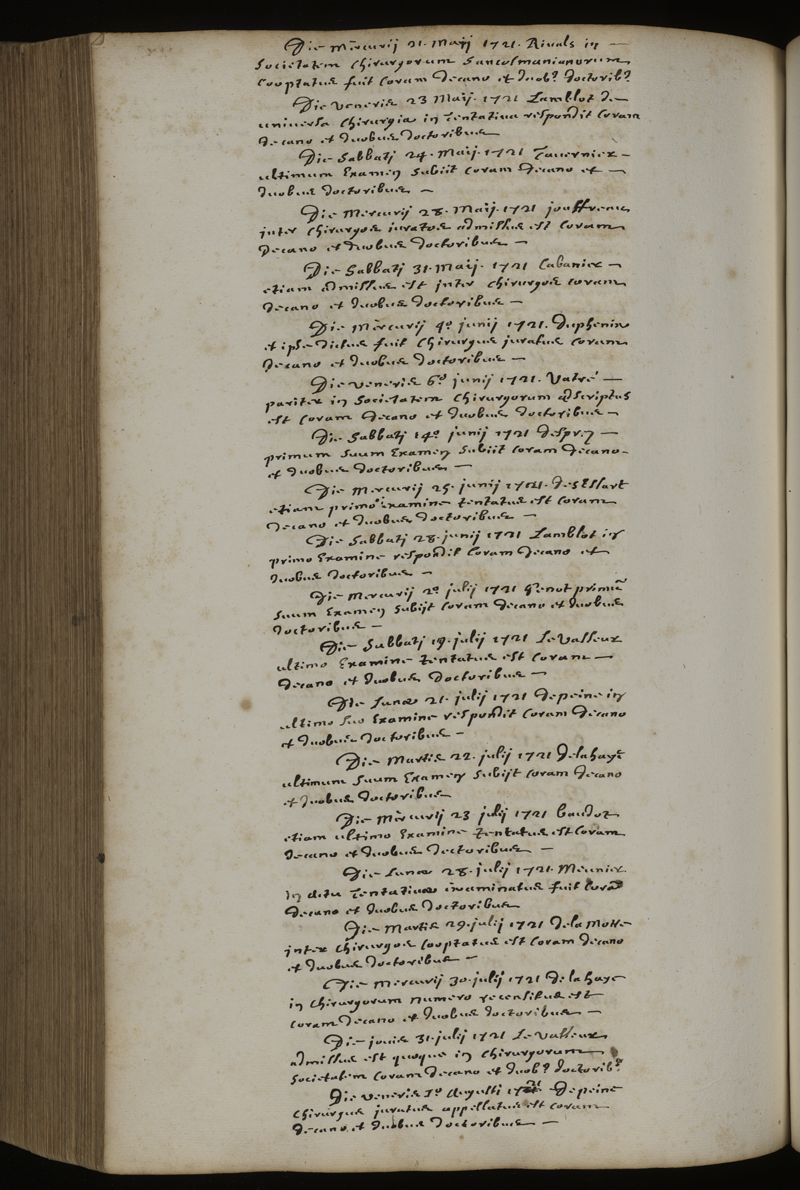 Die Mercurij 21. Maij 1721. Rivals in —
Societatem Chirurgorum Sancosmianorum
Cooptatus fuit Coram Decano et duob9 doctorib9
Die Veneris 23 Maij. 1721 Lamblot de
universa Chirurgia in tentativa respondit Coram
decano et duobus Doctoribus
Die Sabbatj 24. Maij. 1721 Tavernier —
ultimum Examen Subiit Coram decano et —
duobus doctoribus —
Die Mercurij 28. Maij. 1721 jouffreau
inter Chirurgos juratos admissus est Coram
Decano et duobus doctoribus —
Die Sabbatj 31. Maij. 1721 Cabanier —
etiam admissus est inter Chirurgos coram
decano et duobus doctoribus —
Die Mercurij 4º junij 1721. Duphenin
et ipse dictus fuit Chirurgus juratus Coram
decano et duobus doctoribus —
Die veneris 6º junij 1721. Vatré —
pariter in Societatem Chirurgorum adscriptus
est Coram decano et duobus doctoribus —
Die Sabbatj 14º junij 1721 desprez —
primum suum Examen Subiit coram decano —
et duobus doctoribus —
Die Mercurij 25. junij 1721. desEssart
etiam primo Examine tentatus est Coram
Decano et duobus doctoribus —
Die Sabbatj 28. junij 1721 Lamblot in
primo Examine respondit Coram decano et
duobus doctoribus —
Die Mercurij 2º julij 1721 Genot primū
suum Examen Subijt Coram decano et duobus
doctoribus —
Die Sabbatj 19. julij 1721 LeVasseur
ultimo Examine tentatus est Coram —
decano et duobus Doctoribus —
Die Lunæ 21. julij 1721 depeine in
ultimo suo Examine respondit Coram decano
et duobus doctoribus —
Die Martis 22. julij 1721 Delahaye
ultimum suum Examen Subijt Coram decano
et duobus doctoribus
Die Mercurij 23 julij 1721 baudot
etiam ultimo Examine tentatus est Coram
decano et duobus Doctoribus —
Die Lunæ 28. julij 1721. Meunier
in actu tentativæ examinatus fuit Corā
decano et duobus Doctoribus
Die Martis 29. julij 1721 dela Motte
inter Chirurgos Cooptatus est Coram decano
et duobus doctoribus —
Die Mercurij 30. julij 1721 delahaye
in Chirurgorum numero recensitus est
Coram Decano et duobus doctoribus —
Die jovis 31. julij 1721 LeVasseur
admissus est quoque in Chirurgorum
Societatem Coram decano et duob9 doctorib9
Die veneris 1º Augusti 1721 depeine
Chirurgus juratus appellatus est Coram
decano et duobus Doctoribus —